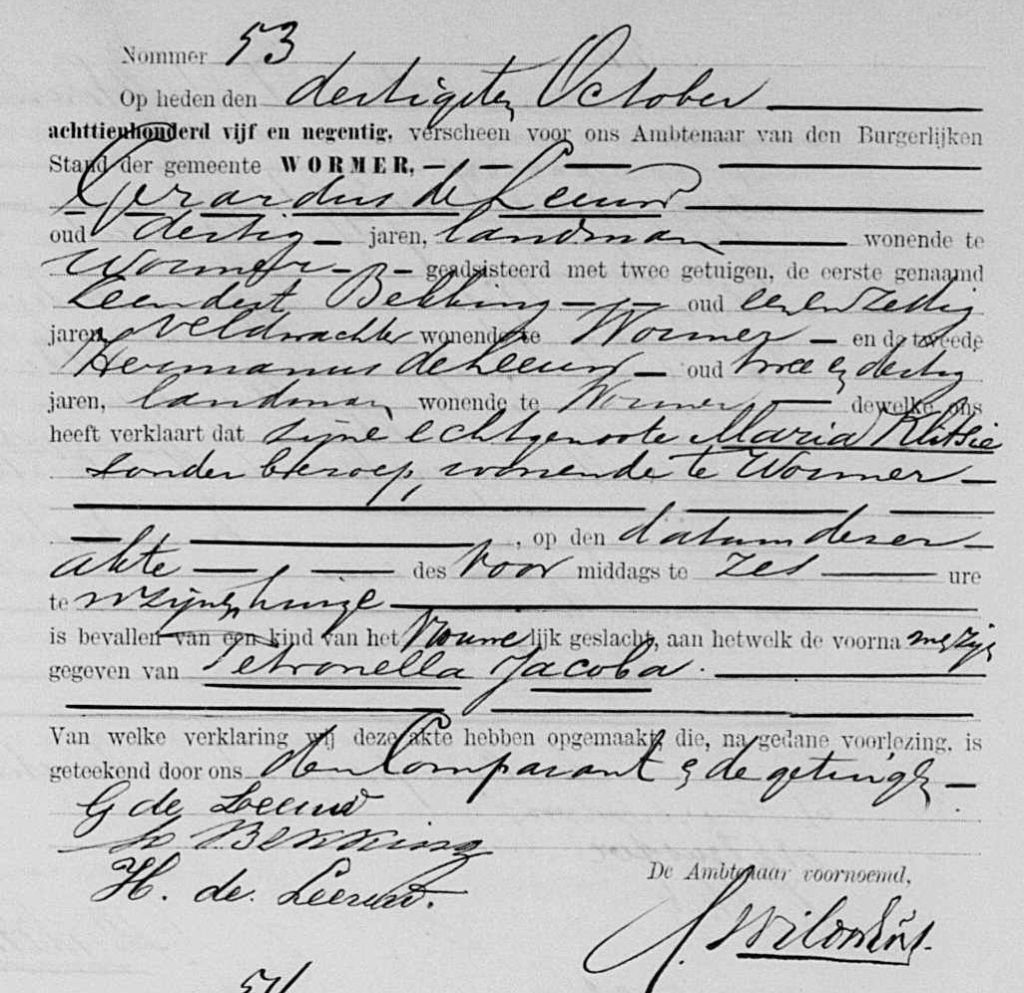 Nommer 53
Op heden den dertigsten October
achttienhonderd vijf en negentig, verscheen voor ons Ambtenaar van den Burgerlijken
Stand der gemeente WORMER,
Gerardus de Leeuw
oud dertig jaren, landman wonende te
Wormer geadsisteerd met twee getuigen, de eerste genaamd
Leendert Bekking oud een en zestig
jaren, veldwachter wonende te Wormer en de tweede
Hermanus de Leeuw oud twee en dertig
jaren, landman wonende te Wormer dewelke ons
heeft verklaart dat zijne echtgenoote Maria Klitsie
zonder beroep, wonende te Wormer
, op den datum dezer
akte des Voor middags te zes ure
te in zijnen huize
is bevallen van een kind van het Vrouwelijk geslacht, aan hetwelk de voornamen zijn
gegeven van Petronella Jacoba.
Van welke verklaring wij deze akte hebben opgemaakt, die, na gedane voorlezing, is
geteekend door ons den Comparant en de getuigen
G de Leeuw
L Bekking
H. de Leeuw.
De Ambtenaar voornoemd,
54